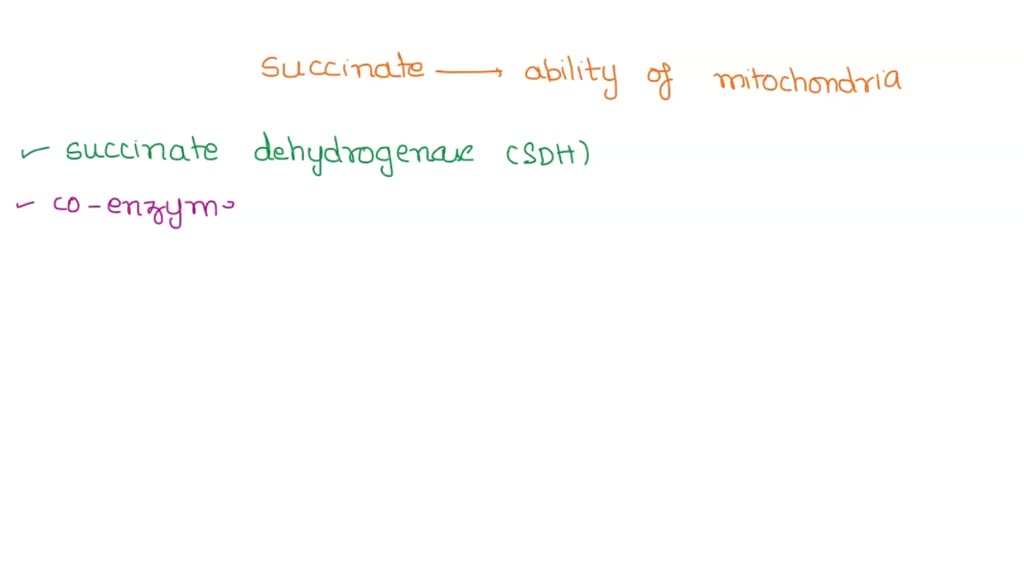 succinate → ability of mitochondria
✓ succinate dehydrogenase (SDH)
✓ co-enzym